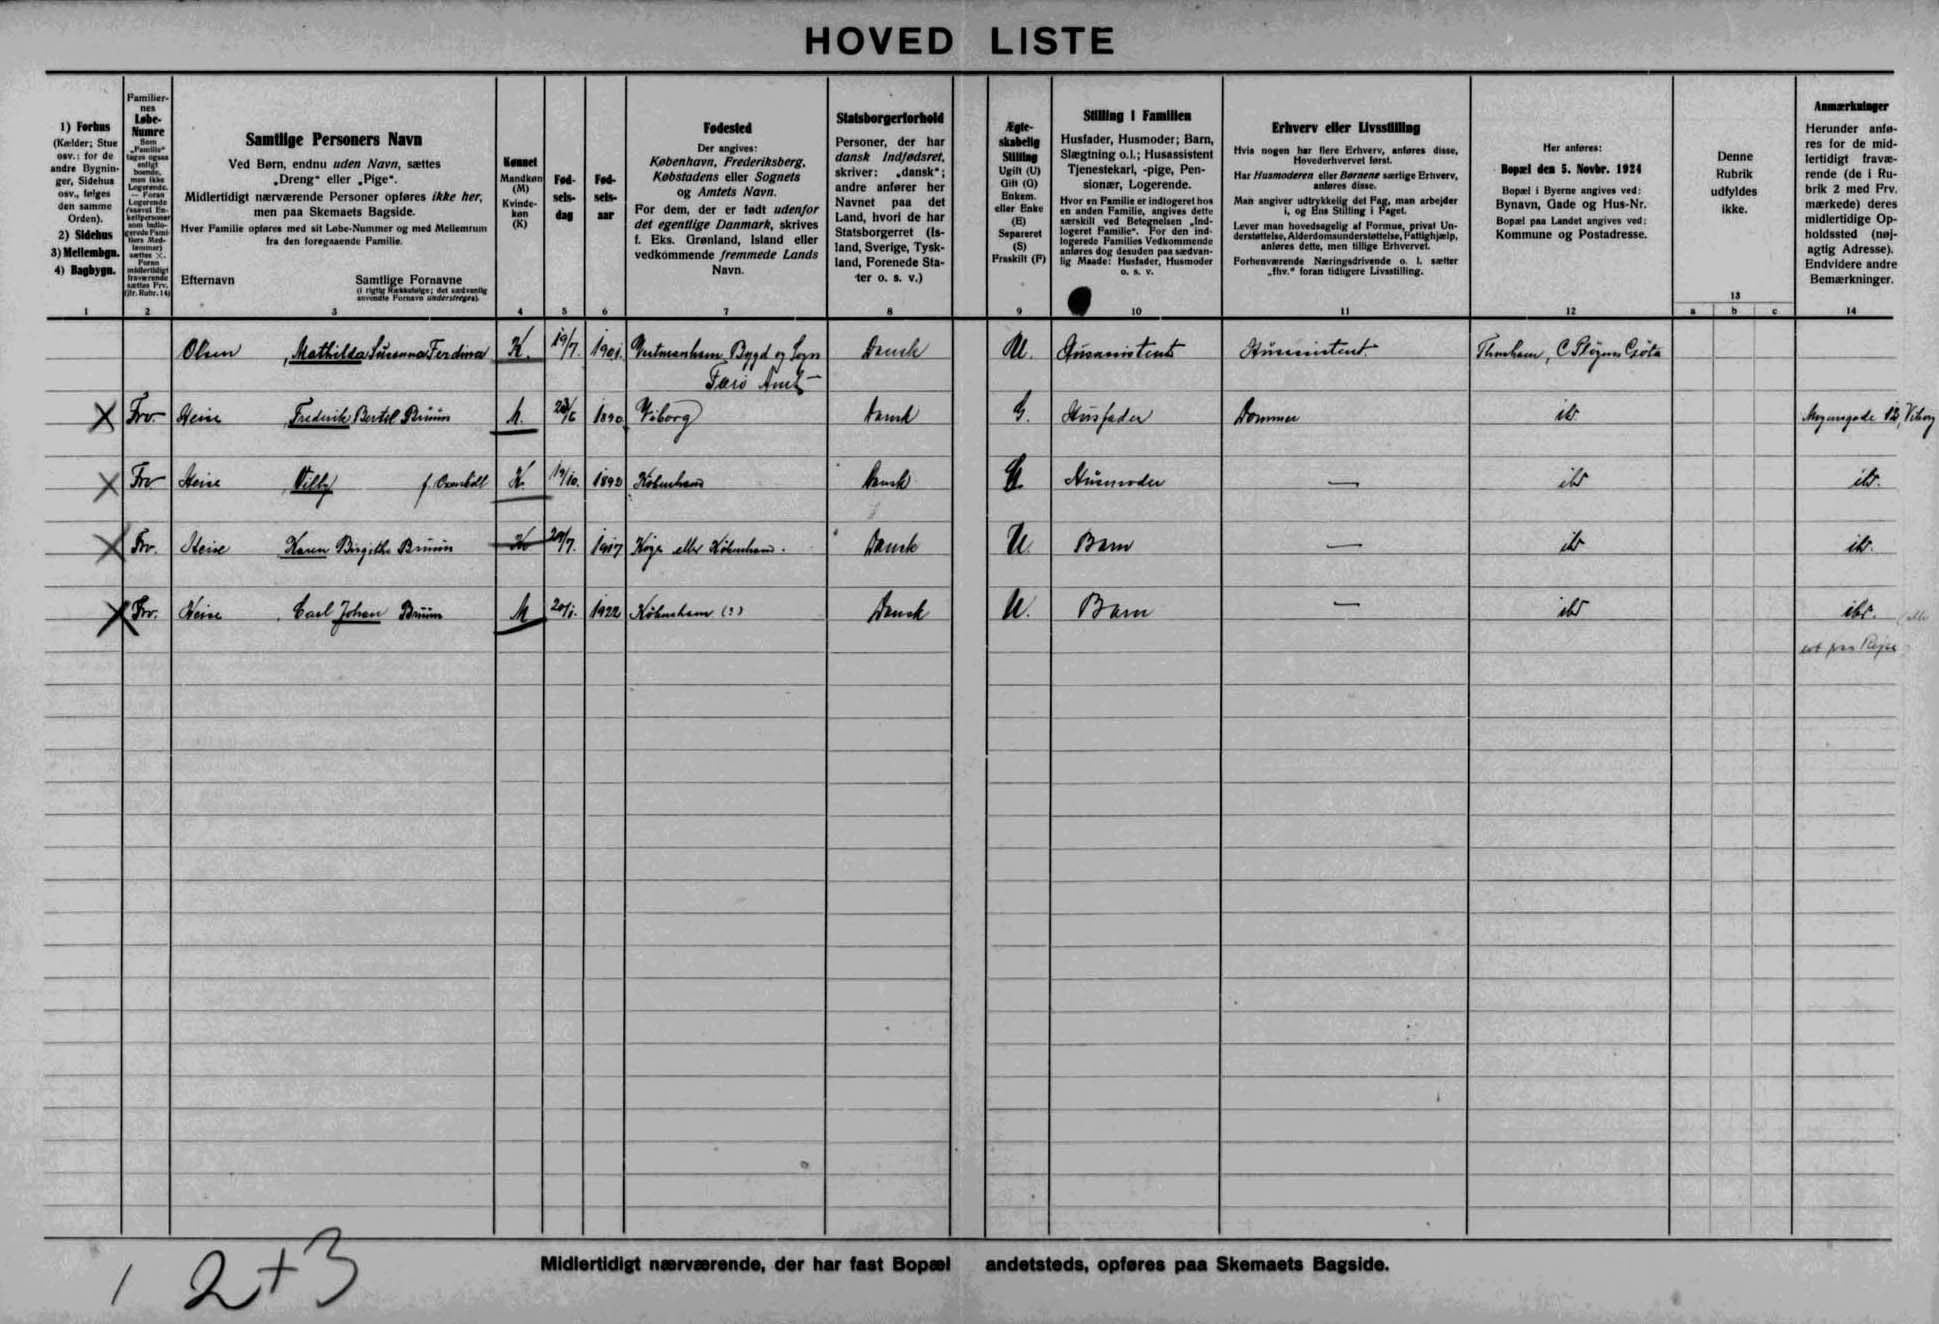 HOVED LISTE
1) Forhus
(Kælder; Stue
osv.: for de
andre Bygnin-
ger, Sidehus
osv., følges
den samme
Orden).
2) Sidehus
3) Mellembgn.
4) Bagbygn.
1
Familier-
nes
Løbe-
Numre
Som
„Familie"
tages ogsaa
enligt
boende,
men ikke
Logerende.
— Foran
Logerende
(saavel En-
keltpersoner
som indlo-
gerede Fami-
liers Med-
lemmer)
sættes ×.
Foran
midlertidigt
fraværende
sættes Frv.
(jfr. Rubr. 14)
2
Samtlige Personers Navn
Ved Børn, endnu uden Navn, sættes
„Dreng" eller „Pige".
Midlertidigt nærværende Personer opføres ikke her,
men paa Skemaets Bagside.
Hver Familie opføres med sit Løbe-Nummer og med Mellemrum
fra den foregaaende Familie.
Efternavn Samtlige Fornavne
(i rigtig Rækkefølge; det sædvanlig
anvendte Fornavn understreges).
3
Kønnet
Mandkøn
(M)
Kvinde-
køn
(K)
4
Fød-
sels-
dag
5
Fød-
sels-
aar
6
Fødested
Der angives:
København, Frederiksberg,
Købstadens eller Sognets
og Amtets Navn.
For dem, der er født udenfor
det egentlige Danmark, skrives
f. Eks. Grønland, Island eller
vedkommende fremmede Lands
Navn.
7
Statsborgerforhold
Personer, der har
dansk Indfødsret,
skriver: „dansk";
andre anfører her
Navnet paa det
Land, hvori de har
Statsborgerret (Is-
land, Sverige, Tysk-
land, Forenede Sta-
ter o. s. v.)
8
Ægte-
skabelig
Stilling
Ugift (U)
Gift (G)
Enkem.
eller Enke
(E)
Separeret
(S)
Fraskilt (F)
9
Stilling i Familien
Husfader, Husmoder; Barn,
Slægtning o.l.; Husassistent
Tjenestekarl, -pige, Pen-
sionær, Logerende.
Hvor en Familie er indlogeret hos
en anden Familie, angives dette
særskilt ved Betegnelsen „Ind-
logeret Familie". For den ind-
logerede Families Vedkommende
anføres dog desuden paa sædvan-
lig Maade: Husfader, Husmoder
o. s. v.
10
Erhverv eller Livsstilling
Hvis nogen har flere Erhverv, anføres disse,
Hovederhvervet først.
Har Husmoderen eller Børnene særlige Erhverv,
anføres disse.
Man angiver udtrykkelig det Fag, man arbejder
i, og Ens Stilling i Faget.
Lever man hovedsagelig af Formue, privat Un-
derstøttelse, Alderdomsunderstøttelse, Fattighjælp,
anføres dette, men tillige Erhvervet.
Forhenværende Næringsdrivende o. l. sætter
„fhv." foran tidligere Livsstilling.
11
Her anføres:
Bopæl den 5. Novbr. 1924
Bopæl i Byerne angives ved:
Bynavn, Gade og Hus-Nr.
Bopæl paa Landet angives ved:
Kommune og Postadresse.
12
Denne
Rubrik
udfyldes
ikke.
13
a b c
Anmærkninger
Herunder anfø-
res for de mid-
lertidigt fravæ-
rende (de i Ru-
brik 2 med Frv.
mærkede) deres
midlertidige Op-
holdssted (nøj-
agtig Adresse).
Endvidere andre
Bemærkninger.
14
Olsen, Mathilda Susanna Ferdina K. 19/7. 1901. Vestmanhavn Bygd og Sogn Dansk U. Husassistent Husassistent Thorshavn,
Færø Amt
Frv. Heise, Frederik Bertel Bruun M. 1890 Viborg Dansk G. Husfader Dommer ib. Mogensgade 12, Viborg
Frv Heise, Villy f. K. 19/10. København Dansk G. Husmoder — ib ib.
Frv. Heise Karen Birgithe Bruun K 1917 Køge eller København. Dansk U. Barn — ib ib.
Frv. Heise, Carl Johan Bruun M 1922 København (?) Dansk U. Barn — ib ib.
paa Rejse
Midlertidigt nærværende, der har fast Bopæl andetsteds, opføres paa Skemaets Bagside.
1 2+3